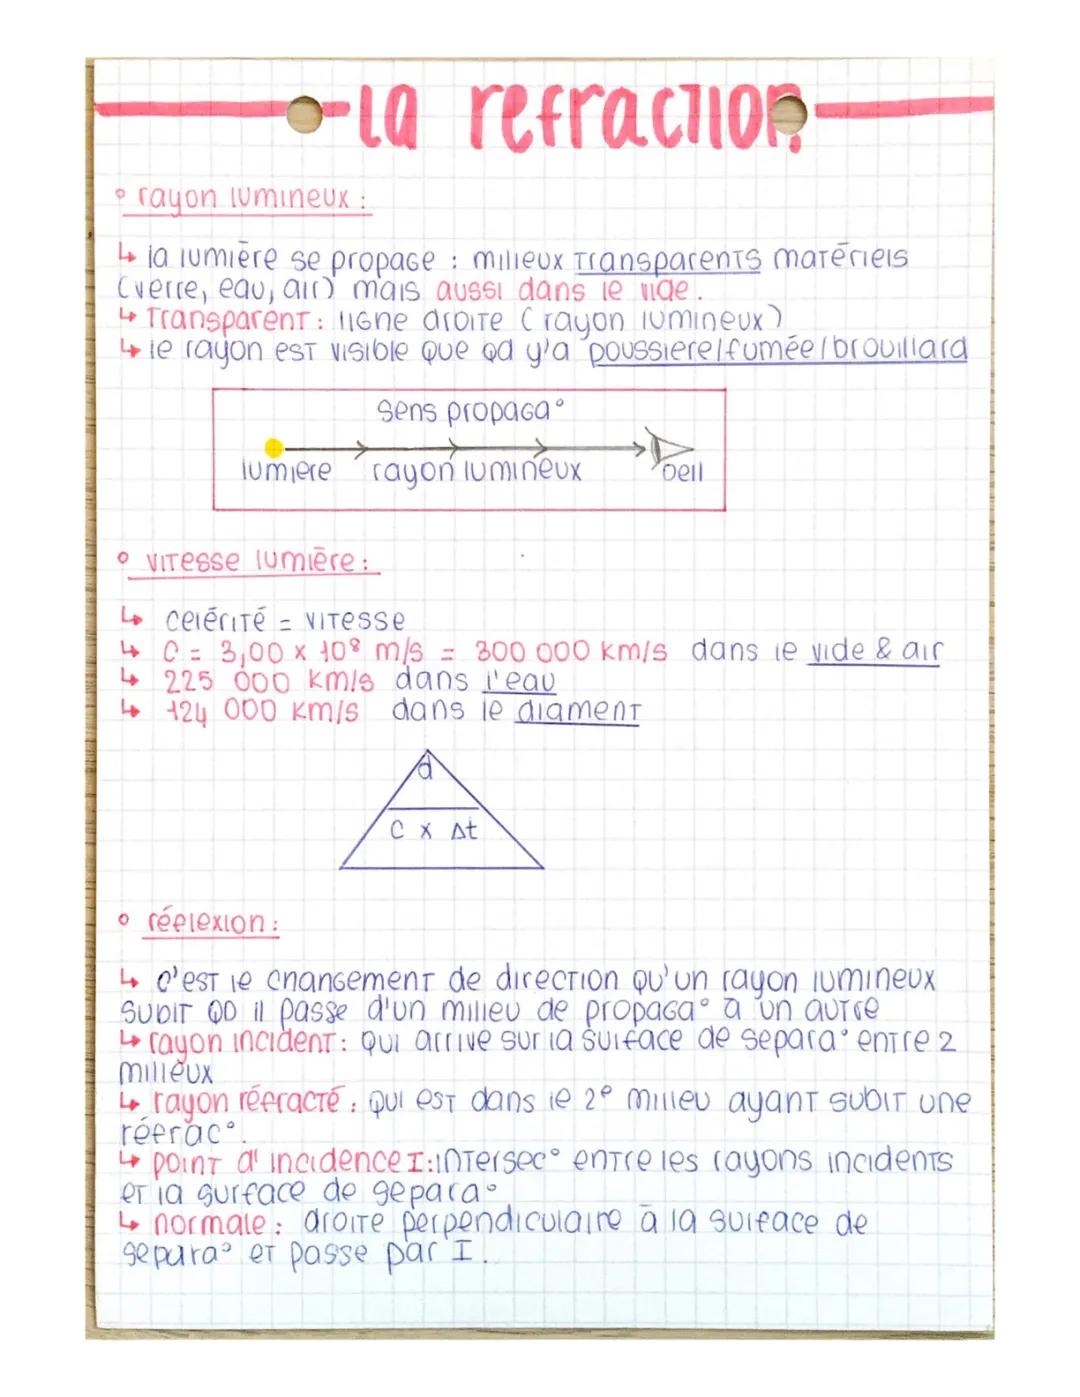 La refraction
° rayon lumineux :
↳ la lumière se propage : milieux transparents matériels
(verre, eau, air) mais aussi dans le vide.
↳ Transparent : ligne droite (rayon lumineux)
↳ le rayon est visible que qd y'a poussiere/fumée/brouillard
sens propaga°
lumiere rayon lumineux oeil
° vitesse lumière :
↳ celérité = vitesse
↳ C = 3,00 x 10⁸ m/s = 300 000 km/s dans le vide & air
↳ 225 000 km/s dans l'eau
↳ 124 000 km/s dans le diament
d
C x Δt
° réflexion :
↳ c'est le changement de direction qu'un rayon lumineux
subit QD il passe d'un milieu de propaga° à un autre
↳ rayon incident : qui arrive sur la surface de separa° entre 2
milieux
↳ rayon réfracté : qui est dans le 2e milieu ayant subit une
réfrac°.
↳ point d'incidence I : intersec° entre les rayons incidents
et la surface de separa°
↳ normale : droite perpendiculaire à la surface de
separa° et passe par I.